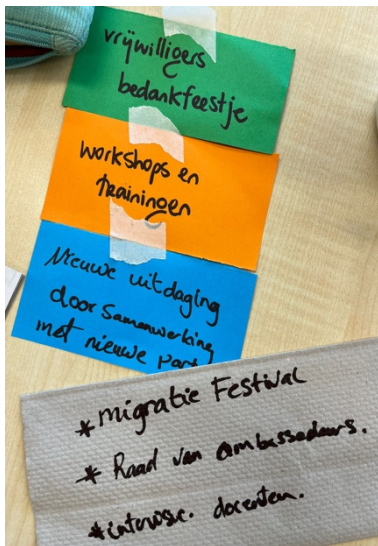 vrijwilligers
bedankfeestje
workshops en
trainingen
Nieuwe uitdaging
door samenwerking
met nieuwe part
*migratie Festival
* Raad van ambassadeurs.
* docenten.